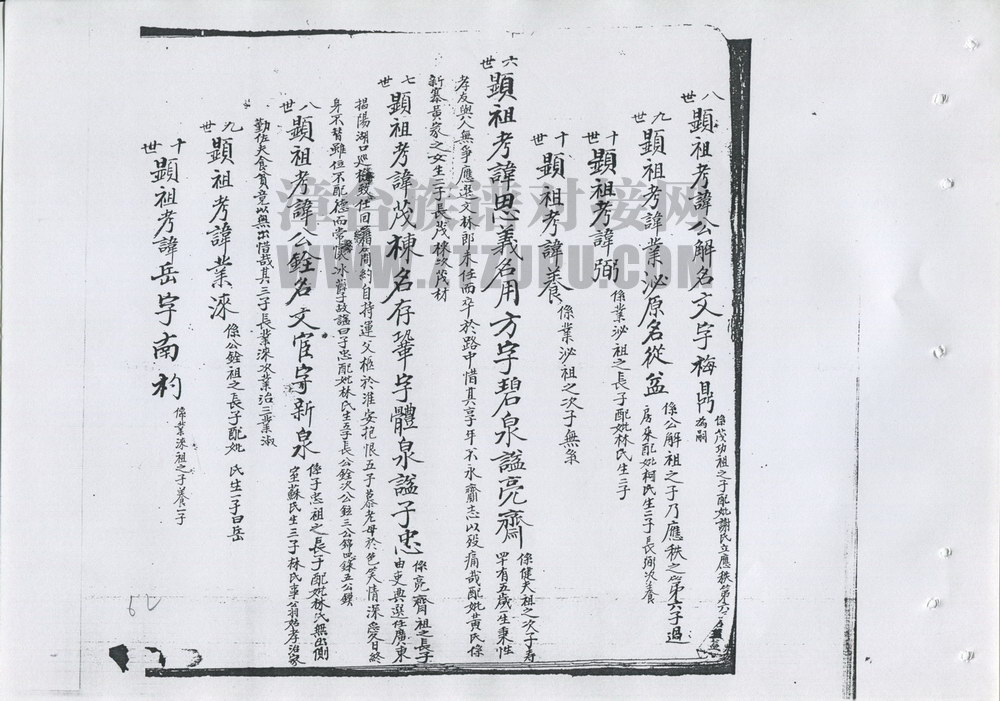 八世 顯祖考諱公解名文字梅鼎 係茂功祖之子配妣謝氏立應秩第六子
為嗣
九世 顯祖考諱業泌原名從盆 係公解祖之子乃應秩之第六子過
房來配妣柯氏生二子長弼次養
十世 顯祖考諱弼 係業泌祖之長子配妣林氏生二子
十世 顯祖考諱養 係業泌祖之次子無嗣
六世 顯祖考諱思義名用方字碧泉謚亮齋 係健夫祖之次子壽
四十有五歲一生秉性
孝友與人無爭應選文林郎未任而卒於路中惜其享年不永齎志以歿痛哉配妣黃氏係
新寨黃家之女生二子長茂棟次茂材
七世 顯祖考諱茂棟名存鞏字體泉謚子忠 係亮齋祖之長子
由吏典選任廣東
揭陽湖口巡檢致仕回籍簡約自持運父柩於淮安抱恨五子慕老母於色笑情深愛日終
身不替雖恒不配德而常懷冰蘗子政謚曰子忠配妣林氏生五子長公銓次公鉉三公錦四銶五公鎖
八世 顯祖考諱公銓名文宦字新泉 係子忠祖之長子配妣林氏無出側
室蘇氏生三子林氏事翁姑孝治家
勤佐夫食貧竟以無出惜哉其三子長業淶次業治三業淑
九世 顯祖考諱業淶 係公銓祖之長子配妣 氏生一子曰岳
十世 顯祖考諱岳字南礿 係業淶祖之子養一子
漳台族谱对接网
WWW.ZTZUPU.COM
62